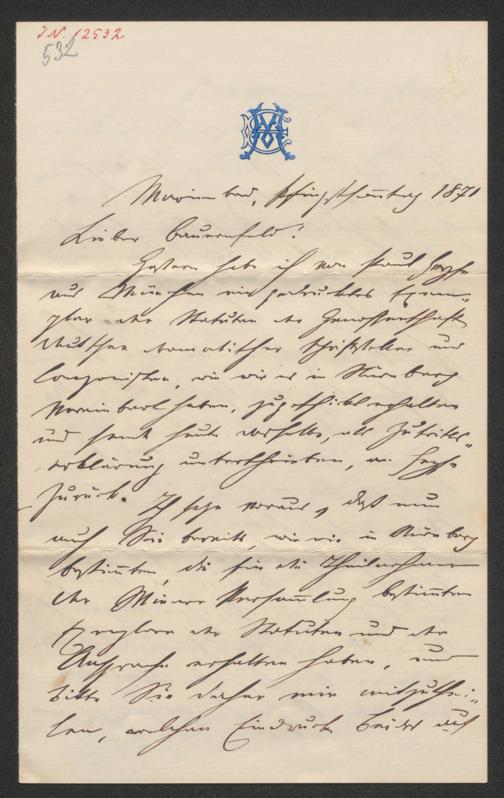 I.N. 12532
532
Marienbad, Pfingstsonntag 1871
Lieber Bauernfeld!
Gestern habe ich von Paul Heyse
aus München ein gedrucktes Exem-
plar der Statuten der Genossenschaft
deutscher dramatischer Schriftsteller und
Componisten, wie wir es in Nürnberg
vereinbart haben, zugeschickt erhalten
und sende heute dasselbe, als Zutritts-
erklärung unterschrieben, an Heyse
zurück. Ich setze voraus, daß nun
auch Sie bereits, wie wir in Nürnberg
bestimmten, die für die Theilnehmer
der Wiener Versammlung bestimmten
Exemplare der Statuten und der
Ansprache erhalten haben, und
bitte Sie daher mir mitzuthei-
len, welchen Eindruck beides auf